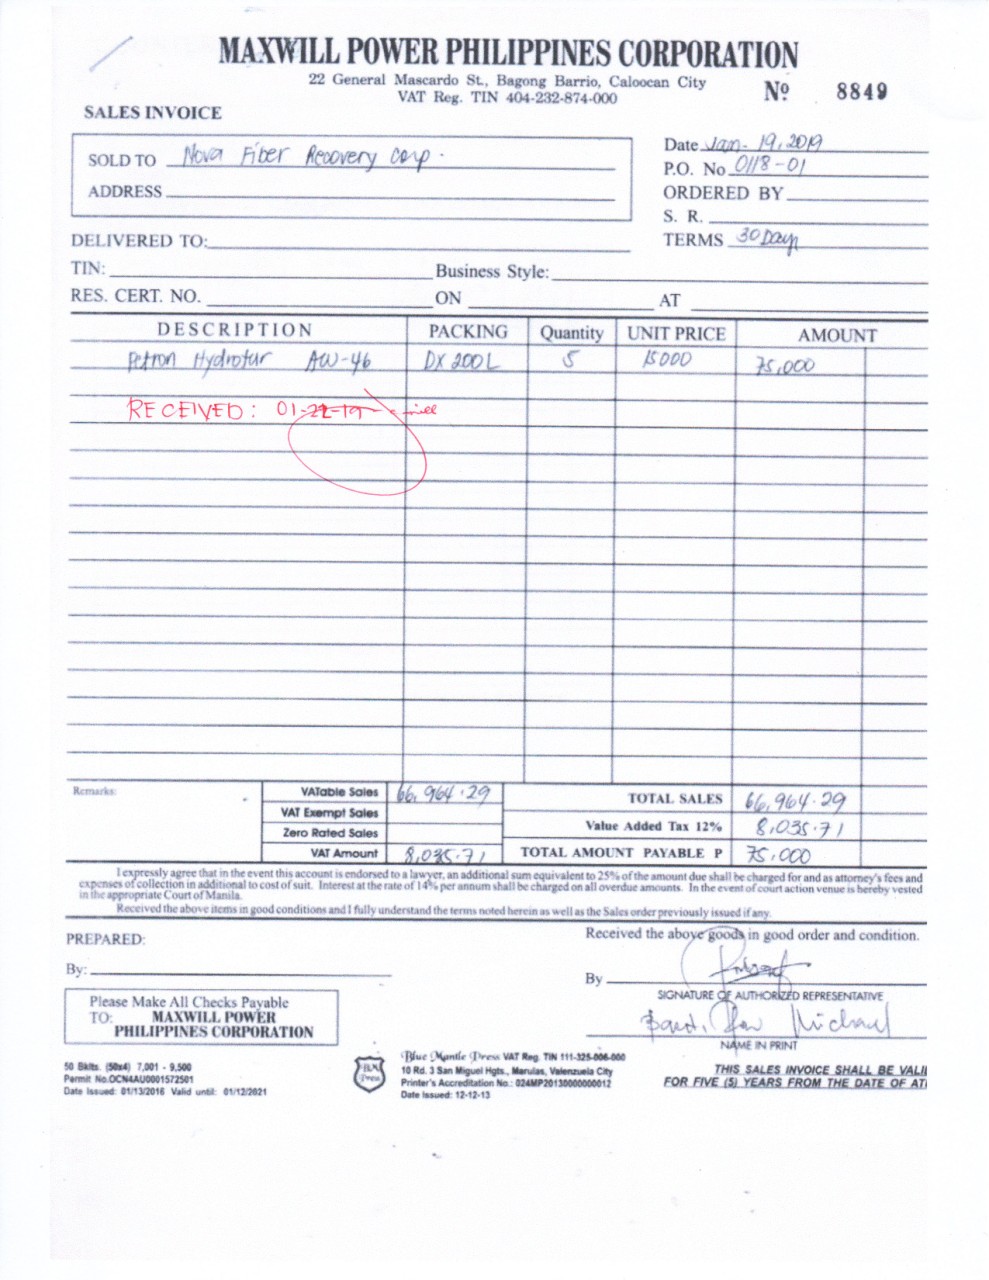 MAXWILL POWER PHILIPPINES CORPORATION
22 General Mascardo St., Bagong Barrio, Caloocan City
VAT Reg. TIN 404-232-874-000
Nº 8849
SALES INVOICE
SOLD TO Nova Fiber Recovery Corp.
ADDRESS
Date Jan. 19, 2019
P.O. No 0118-01
ORDERED BY
S. R.
TERMS 30 Days
DELIVERED TO:
TIN: Business Style:
RES. CERT. NO. ON AT
DESCRIPTION PACKING Quantity UNIT PRICE AMOUNT
Petron Hydrotur AW-46 DX 200L 5 15000 75,000
RECEIVED: 01-22-19
Remarks:
VATable Sales 66,964.29
VAT Exempt Sales
Zero Rated Sales
VAT Amount 8,035.71
TOTAL SALES 66,964.29
Value Added Tax 12% 8,035.71
TOTAL AMOUNT PAYABLE P 75,000
I expressly agree that in the event this account is endorsed to a lawyer, an additional sum equivalent to 25% of the amount due shall be charged for and as attorney's fees and
expenses of collection in additional to cost of suit. Interest at the rate of 14% per annum shall be charged on all overdue amounts. In the event of court action venue is hereby vested
in the appropriate Court of Manila.
Received the above items in good conditions and I fully understand the terms noted herein as well as the Sales order previously issued if any.
PREPARED:
By:
Received the above goods in good order and condition.
By
SIGNATURE OF AUTHORIZED REPRESENTATIVE
Michael
NAME IN PRINT
Please Make All Checks Payable
TO: MAXWILL POWER
PHILIPPINES CORPORATION
50 Bklts. (50x4) 7,001 - 9,500
Permit No.OCN4AU0001572501
Date Issued: 01/13/2016 Valid until: 01/12/2021
BLM
Press
Blue Mantle Press VAT Reg. TIN 111-325-006-000
10 Rd. 3 San Miguel Hgts., Marulas, Valenzuela City
Printer's Accreditation No.: 024MP20130000000012
Date Issued: 12-12-13
THIS SALES INVOICE SHALL BE VALI
FOR FIVE (5) YEARS FROM THE DATE OF AT